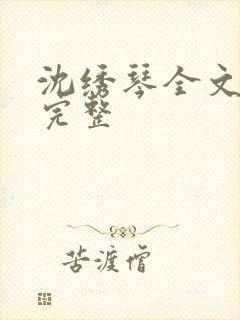 沈绣琴全文
完整
苦渡僧